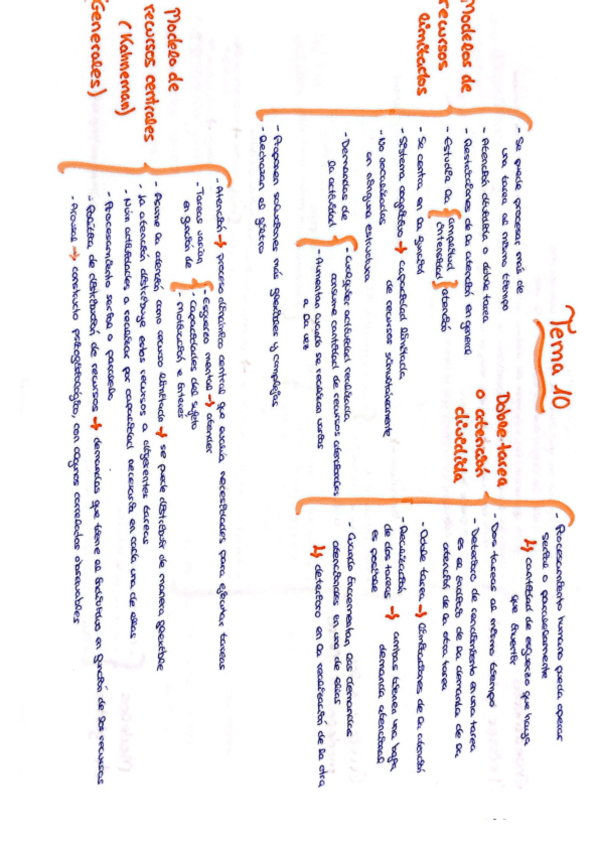 Tema 10
Doble tarea
o atención
dividida
- Procesamiento humano puede operar
serial o paralelamente
↳ cantidad de esfuerzo que haya
que invertir
- Dos tareas al mismo tiempo
- Deterioro de rendimiento en una tarea
es el indicio de la demanda de la
atención de la otra tarea
- Doble tarea → limitaciones de la atención
- Realización
de dos tareas → ambas tienen una baja
es posible demanda atencional
- Cuando incrementan las demandas
atencionales en una de ellas
↳ deterioro en la realización de la otra
Modelos de
recursos
limitados
- Se puede procesar más de
una tarea al mismo tiempo
- Atención dividida o doble tarea
- Restricciones de la atención en general
- Estudia la { amplitud
intensidad } atención
- Se centra en la función
- Sistema cognitivo → capacidad limitada
de recursos simultáneamente
- No localizadas
en ninguna estructura
- Demandas de
la actividad
- Cualquier actividad realizada
consume cantidad de recursos atencionales
- Aumentan cuando se realizan varias
a la vez
- Proponen soluciones más flexibles y complejas
- Rechazan el filtro
Modelo de
recursos centrales
(Kahneman)
(Generales)
- Atención → proceso dinámico central que evalúa necesidades para ejecutar tareas
- Tareas varían
en función de
- Esfuerzo mental → atender
- Capacidades del sujeto
- Motivación e interés
- Asume la atención como recurso limitado → se puede distribuir de manera flexible
- La atención distribuye estos recursos a diferentes tareas
- Núm actividades a realizar por capacidad necesaria en cada una de ellas
- Procesamiento serial o paralelo
- Política de distribución de recursos → demandas que tiene el individuo en función de sus recursos
- Arousal → constructo psicofisiológico, con algunos correlatos observables